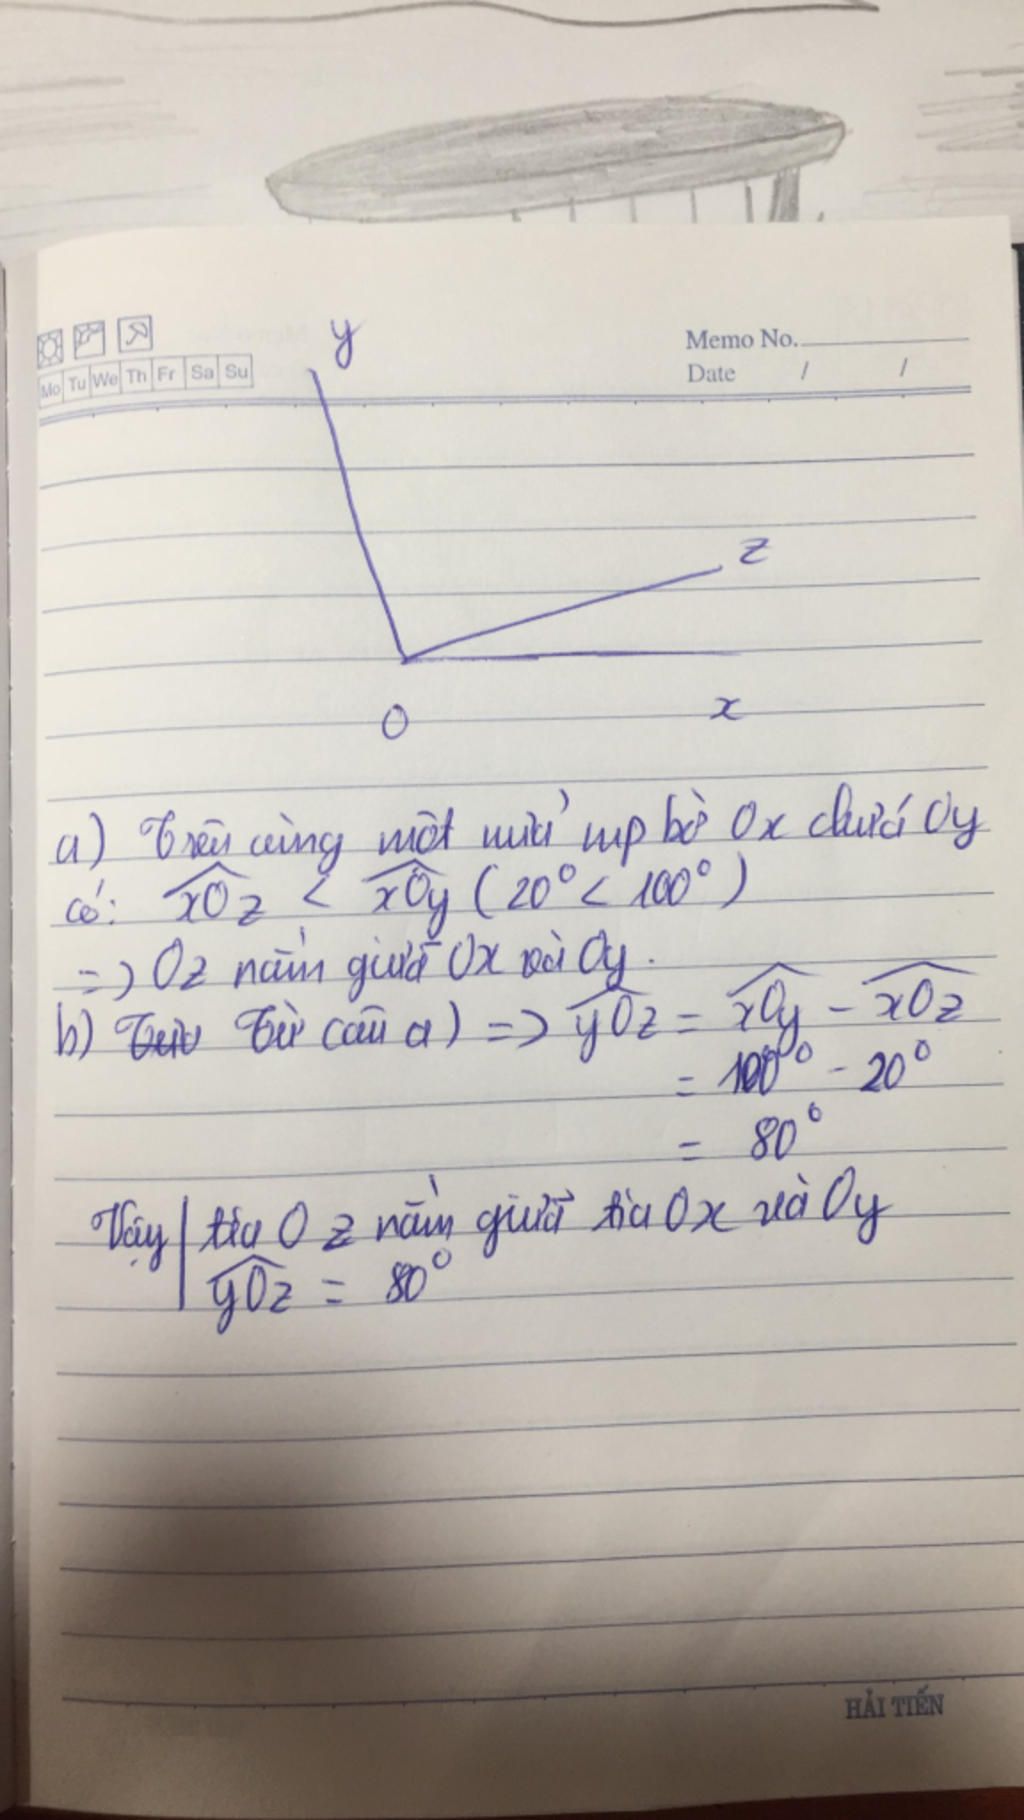 Mo Tu We Th Fr Sa Su
Memo No.
Date / /
y
z
O
x
a) Trên cùng một nửa mp bờ Ox chứa Oy
có: xOz < xOy (20° < 100°)
=> Oz nằm giữa Ox và Oy.
b) Từ câu a) => yOz = xOy - xOz
= 100° - 20°
= 80°
Vậy | tia Oz nằm giữa tia Ox và Oy
yOz = 80°
HẢI TIẾN